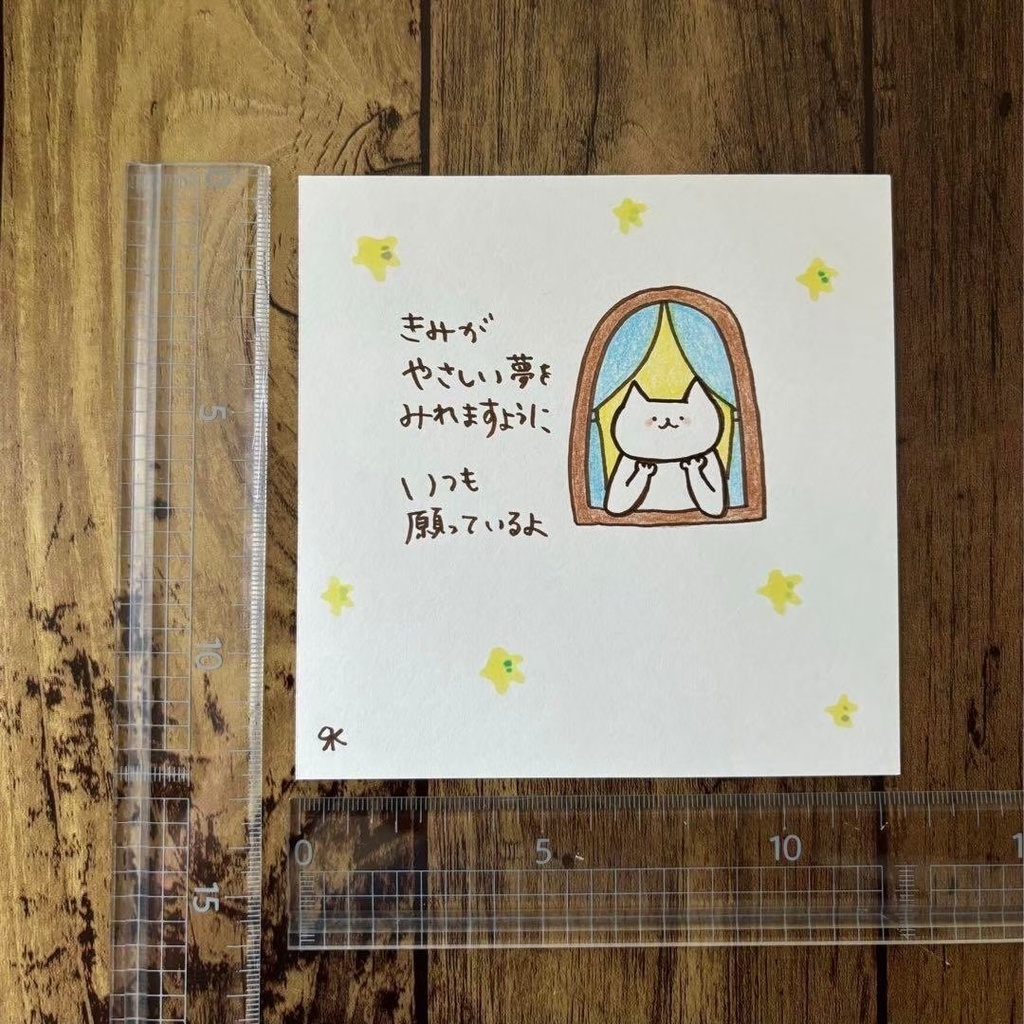 きみが
やさしい夢を
みれますように
いつも
願っているよ
0
5
10
15
0
5
10
1